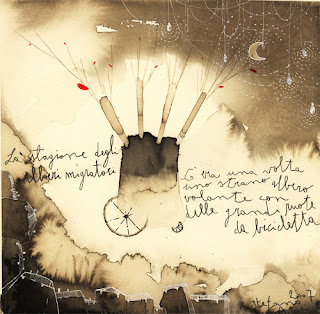 La stagione degli
alberi migratori
C'era una volta
uno strano albero
volante con
delle grandi ruote
da bicicletta
2007